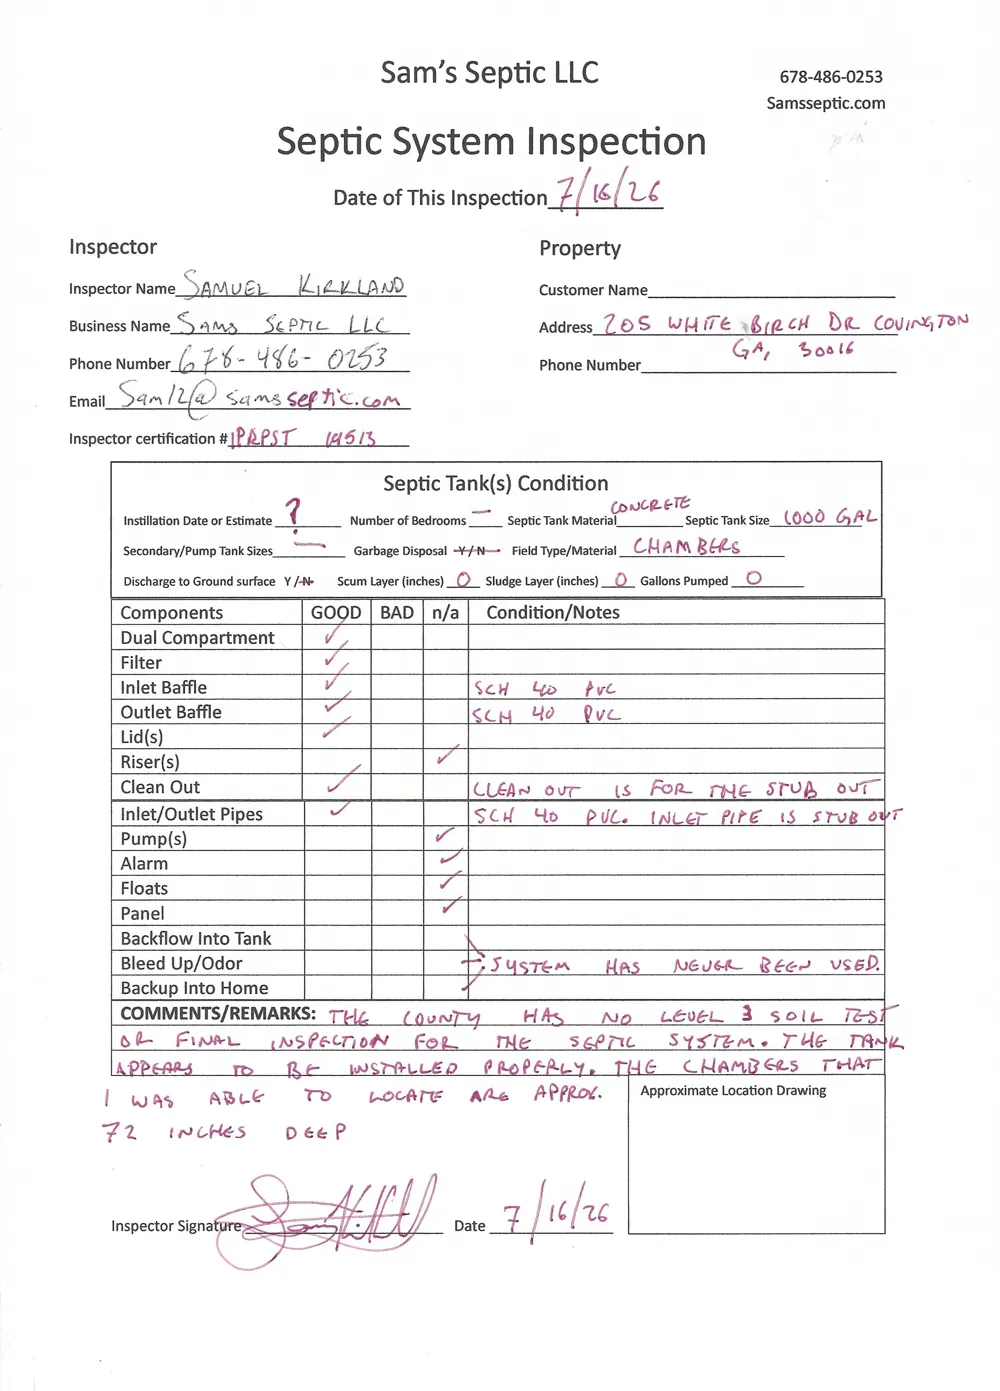 Sam's Septic LLC
678-486-0253
Samsseptic.com
Septic System Inspection
Date of This Inspection 7/16/26
Inspector
Property
Inspector Name SAMUEL KIRKLAND
Customer Name
Business Name SAMS SEPTIC LLC
Address 205 WHITE BIRCH DR COVINGTON
GA, 30016
Phone Number 678-486-0253
Phone Number
Email Sam12@samsseptic.com
Inspector certification # IPRPST 19513
Septic Tank(s) Condition
Instillation Date or Estimate ? Number of Bedrooms — Septic Tank Material CONCRETE Septic Tank Size 1000 GAL
Secondary/Pump Tank Sizes — Garbage Disposal Y / N Field Type/Material CHAMBERS
Discharge to Ground surface Y / N Scum Layer (inches) 0 Sludge Layer (inches) 0 Gallons Pumped 0
Components GOOD BAD n/a Condition/Notes
Dual Compartment ✓
Filter ✓
Inlet Baffle ✓ SCH 40 PVC
Outlet Baffle ✓ SCH 40 PVC
Lid(s) ✓
Riser(s) ✓
Clean Out ✓ CLEAN OUT IS FOR THE STUB OUT
Inlet/Outlet Pipes ✓ SCH 40 PVC. INLET PIPE IS STUB OUT
Pump(s) ✓
Alarm ✓
Floats ✓
Panel ✓
Backflow Into Tank
Bleed Up/Odor SYSTEM HAS NEVER BEEN USED.
Backup Into Home
COMMENTS/REMARKS: THE COUNTY HAS NO LEVEL 3 SOIL TEST
OR FINAL INSPECTION FOR THE SEPTIC SYSTEM. THE TANK
APPEARS TO BE INSTALLED PROPERLY. THE CHAMBERS THAT
I WAS ABLE TO LOCATE ARE APPROX.
72 INCHES DEEP
Approximate Location Drawing
Inspector Signature Date 7/16/26